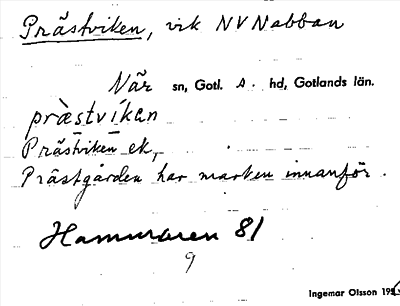 Prästviken, vik NV Nabban
När sn, Gotl. A. hd, Gotlands län.
prästvíkan
Prästviken ek.,
Prästgården har marken innanför.
Hammaren 81
9
Ingemar Olsson 195